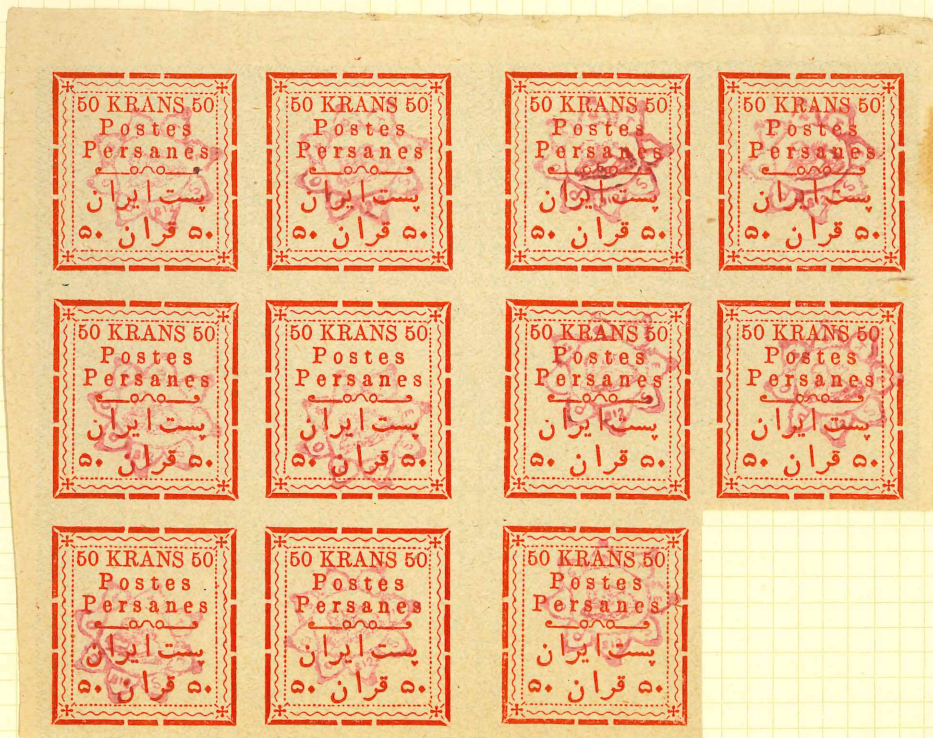 50 KRANS 50
Postes
Persanes
پست ایران
۵۰ قران ۵۰
50 KRANS 50
Postes
Persanes
پست ایران
۵۰ قران ۵۰
50 KRANS 50
Postes
Persanes
پست ایران
۵۰ قران ۵۰
50 KRANS 50
Postes
Persanes
پست ایران
۵۰ قران ۵۰
50 KRANS 50
Postes
Persanes
پست ایران
۵۰ قران ۵۰
50 KRANS 50
Postes
Persanes
پست ایران
۵۰ قران ۵۰
50 KRANS 50
Postes
Persanes
پست ایران
۵۰ قران ۵۰
50 KRANS 50
Postes
Persanes
پست ایران
۵۰ قران ۵۰
50 KRANS 50
Postes
Persanes
پست ایران
۵۰ قران ۵۰
50 KRANS 50
Postes
Persanes
پست ایران
۵۰ قران ۵۰
50 KRANS 50
Postes
Persanes
پست ایران
۵۰ قران ۵۰